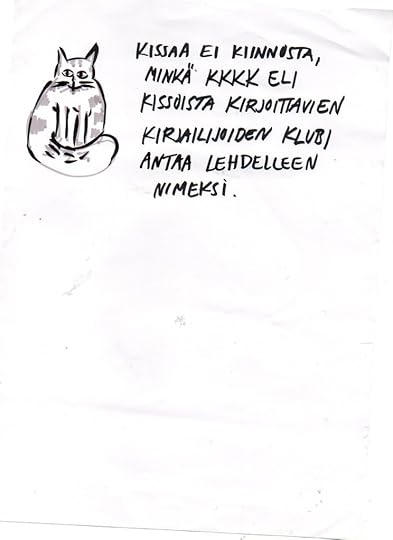 KISSAA EI KIINNOSTA,
MINKÄ KKKK ELI
KISSOISTA KIRJOITTAVIEN
KIRJAILIJOIDEN KLUBI
ANTAA LEHDELLEEN
NIMEKSI.